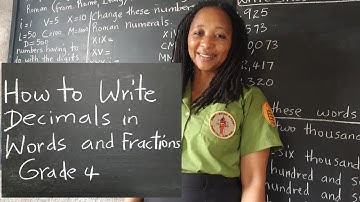 Roman (from Rome, Italy)
I = 1 V = 5 X = 10
L = 50 C = 100 M = 1000
D = 500
numbers having to
do with the digits
Change these number
Roman numerals.
XIX =
XV =
XI
CM
MN
925
0,073
2,417
320
these words
two thousand
six thousand
hundred and s
hundred and
How to Write
Decimals in
Words and Fractions
Grade 4